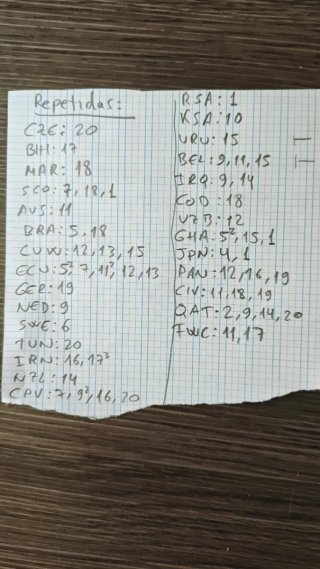 Repetidas:
CZE: 20
BIH: 17
MAR: 18
SCO: 7, 18, 1
AUS: 11
BRA: 5, 18
CUW: 12, 13, 15
ECU: 5², 7, 11², 12, 13
GER: 19
NED: 9
SWE: 6
TUN: 20
IRN: 16, 17³
NZL: 14
CPV: 7, 9², 16, 20
RSA: 1
KSA: 10
URU: 15
BEL: 9, 11, 15
IRQ: 9, 14
COD: 18
UZB: 12
GHA: 5², 15, 1
JPN: 4, 1
PAN: 12, 16, 19
CIV: 11, 18, 19
QAT: 2, 9, 14, 20
FWC: 11, 17